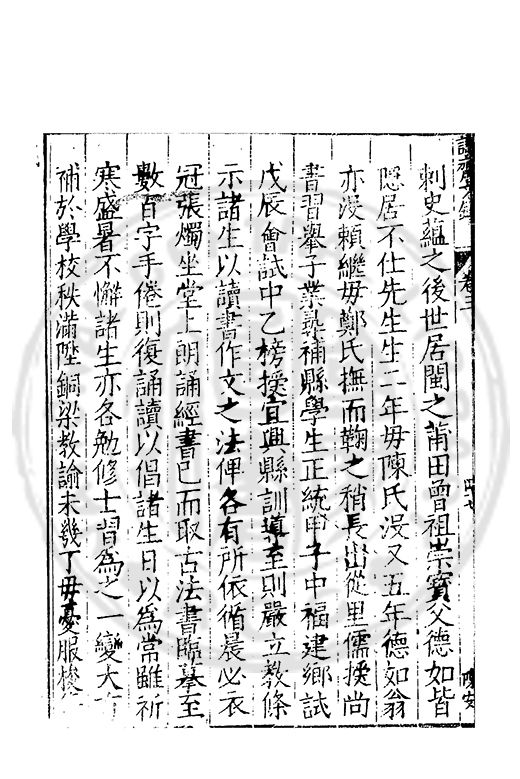 刺史蘊之後世居閩之莆田曾祖崇寶父德如皆
隱居不仕先生生二年毋陳氏沒又五年德如翁
亦沒賴繼毋鄭氏撫而鞠之稍長出從里儒授尚
書習舉子業𡠗補縣學生正統甲子中福建鄉試
戊辰會試中乙榜授宜興縣訓導至則嚴立教條
示諸生以讀書作文之法俾各有所依循晨必衣
冠張燭坐堂上朗誦經書已而取古法書臨摹至
數百字手倦則復誦讀以倡諸生日以為常雖祈
寒盛暑不懈諸生亦各勉修士習為之一變大
補於學校秩滿陞銅梁教諭未幾丁毋憂服
卷二